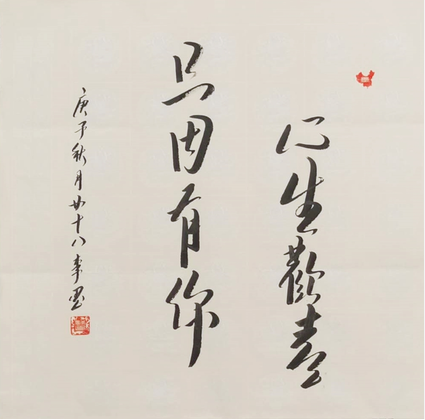 心生歡喜
只因有你
庚子秋月廿十八李墨